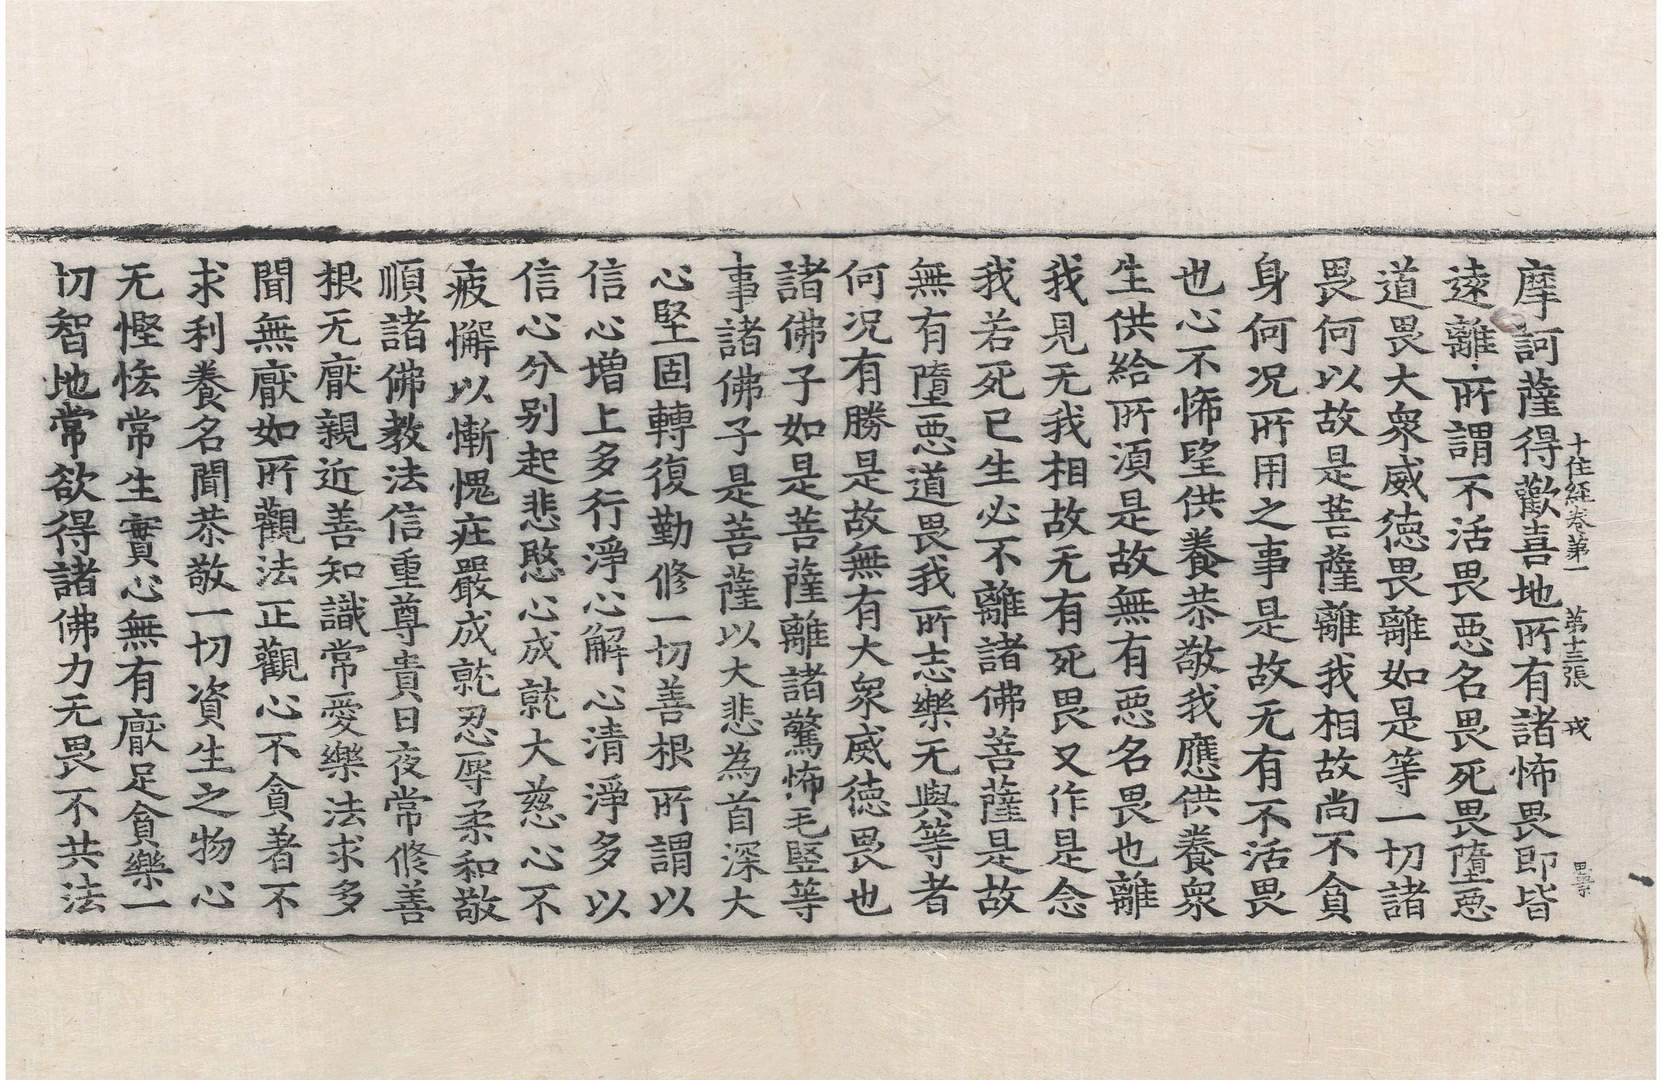 十住經卷第一　第十三張　戎
摩訶薩得歡喜地所有諸怖畏即皆
遠離所謂不活畏惡名畏死畏墮惡
道畏大衆威德畏離如是等一切諸
畏何以故是菩薩離我相故尚不貪
身何况所用之事是故无有不活畏
也心不怖望供養恭敬我應供養衆
生供給所須是故無有惡名畏也離
我見无我相故无有死畏又作是念
我若死已生必不離諸佛菩薩是故
無有墮惡道畏我所志樂无與等者
何况有勝是故無有大衆威德畏也
諸佛子如是菩薩離諸驚怖毛竪等
事諸佛子是菩薩以大悲為首深大
心堅固轉復勤修一切善根所謂以
信心増上多行淨心解心清淨多以
信心分別起悲愍心成就大慈心不
疲懈以慚愧莊嚴成就忍辱柔和敬
順諸佛教法信重尊貴日夜常修善
根无厭親近善知識常愛樂法求多
聞無厭如所觀法正觀心不貪著不
求利養名聞恭敬一切資生之物心
无慳悋常生實心無有厭足貪樂一
切智地常欲得諸佛力无畏不共法